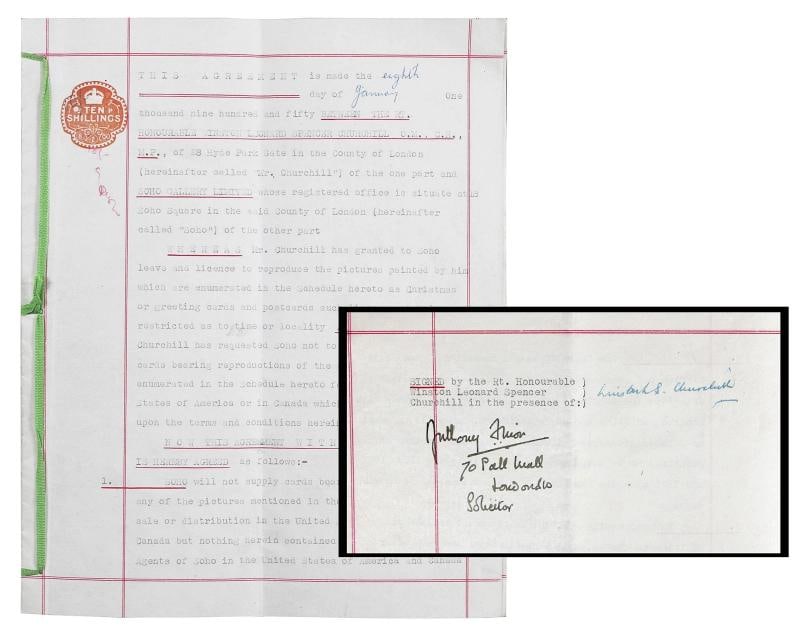 THIS AGREEMENT is made the eighth
day of January One
TEN
SHILLINGS
thousand nine hundred and fifty BETWEEN THE RT.
HONOURABLE WINSTON LEONARD SPENCER CHURCHILL O.M., C.H.,
M.P., of 28 Hyde Park Gate in the County of London
(hereinafter called "Mr. Churchill") of the one part and
SOHO GALLERY LIMITED whose registered office is situate at 18
Soho Square in the said County of London (hereinafter
called "Soho") of the other part
WHEREAS Mr. Churchill has granted to Soho
leave and licence to reproduce the pictures painted by him
which are enumerated in the Schedule hereto as Christmas
or greeting cards and postcards
restricted as to time or locality
Churchill has requested Soho not to
cards bearing reproductions of the
enumerated in the Schedule hereto
States of America or in Canada which
upon the terms and conditions
NOW THIS AGREEMENT
IS HEREBY AGREED as follows:-
1. SOHO will not supply cards
any of the pictures mentioned in the
sale or distribution in the United
Canada but nothing herein contained
Agents of Soho in the United States of America and Canada
SIGNED by the Rt. Honourable )
Winston Leonard Spencer )
Churchill in the presence of:)
Winston S. Churchill
Anthony
70 Pall Mall
London
Solicitor